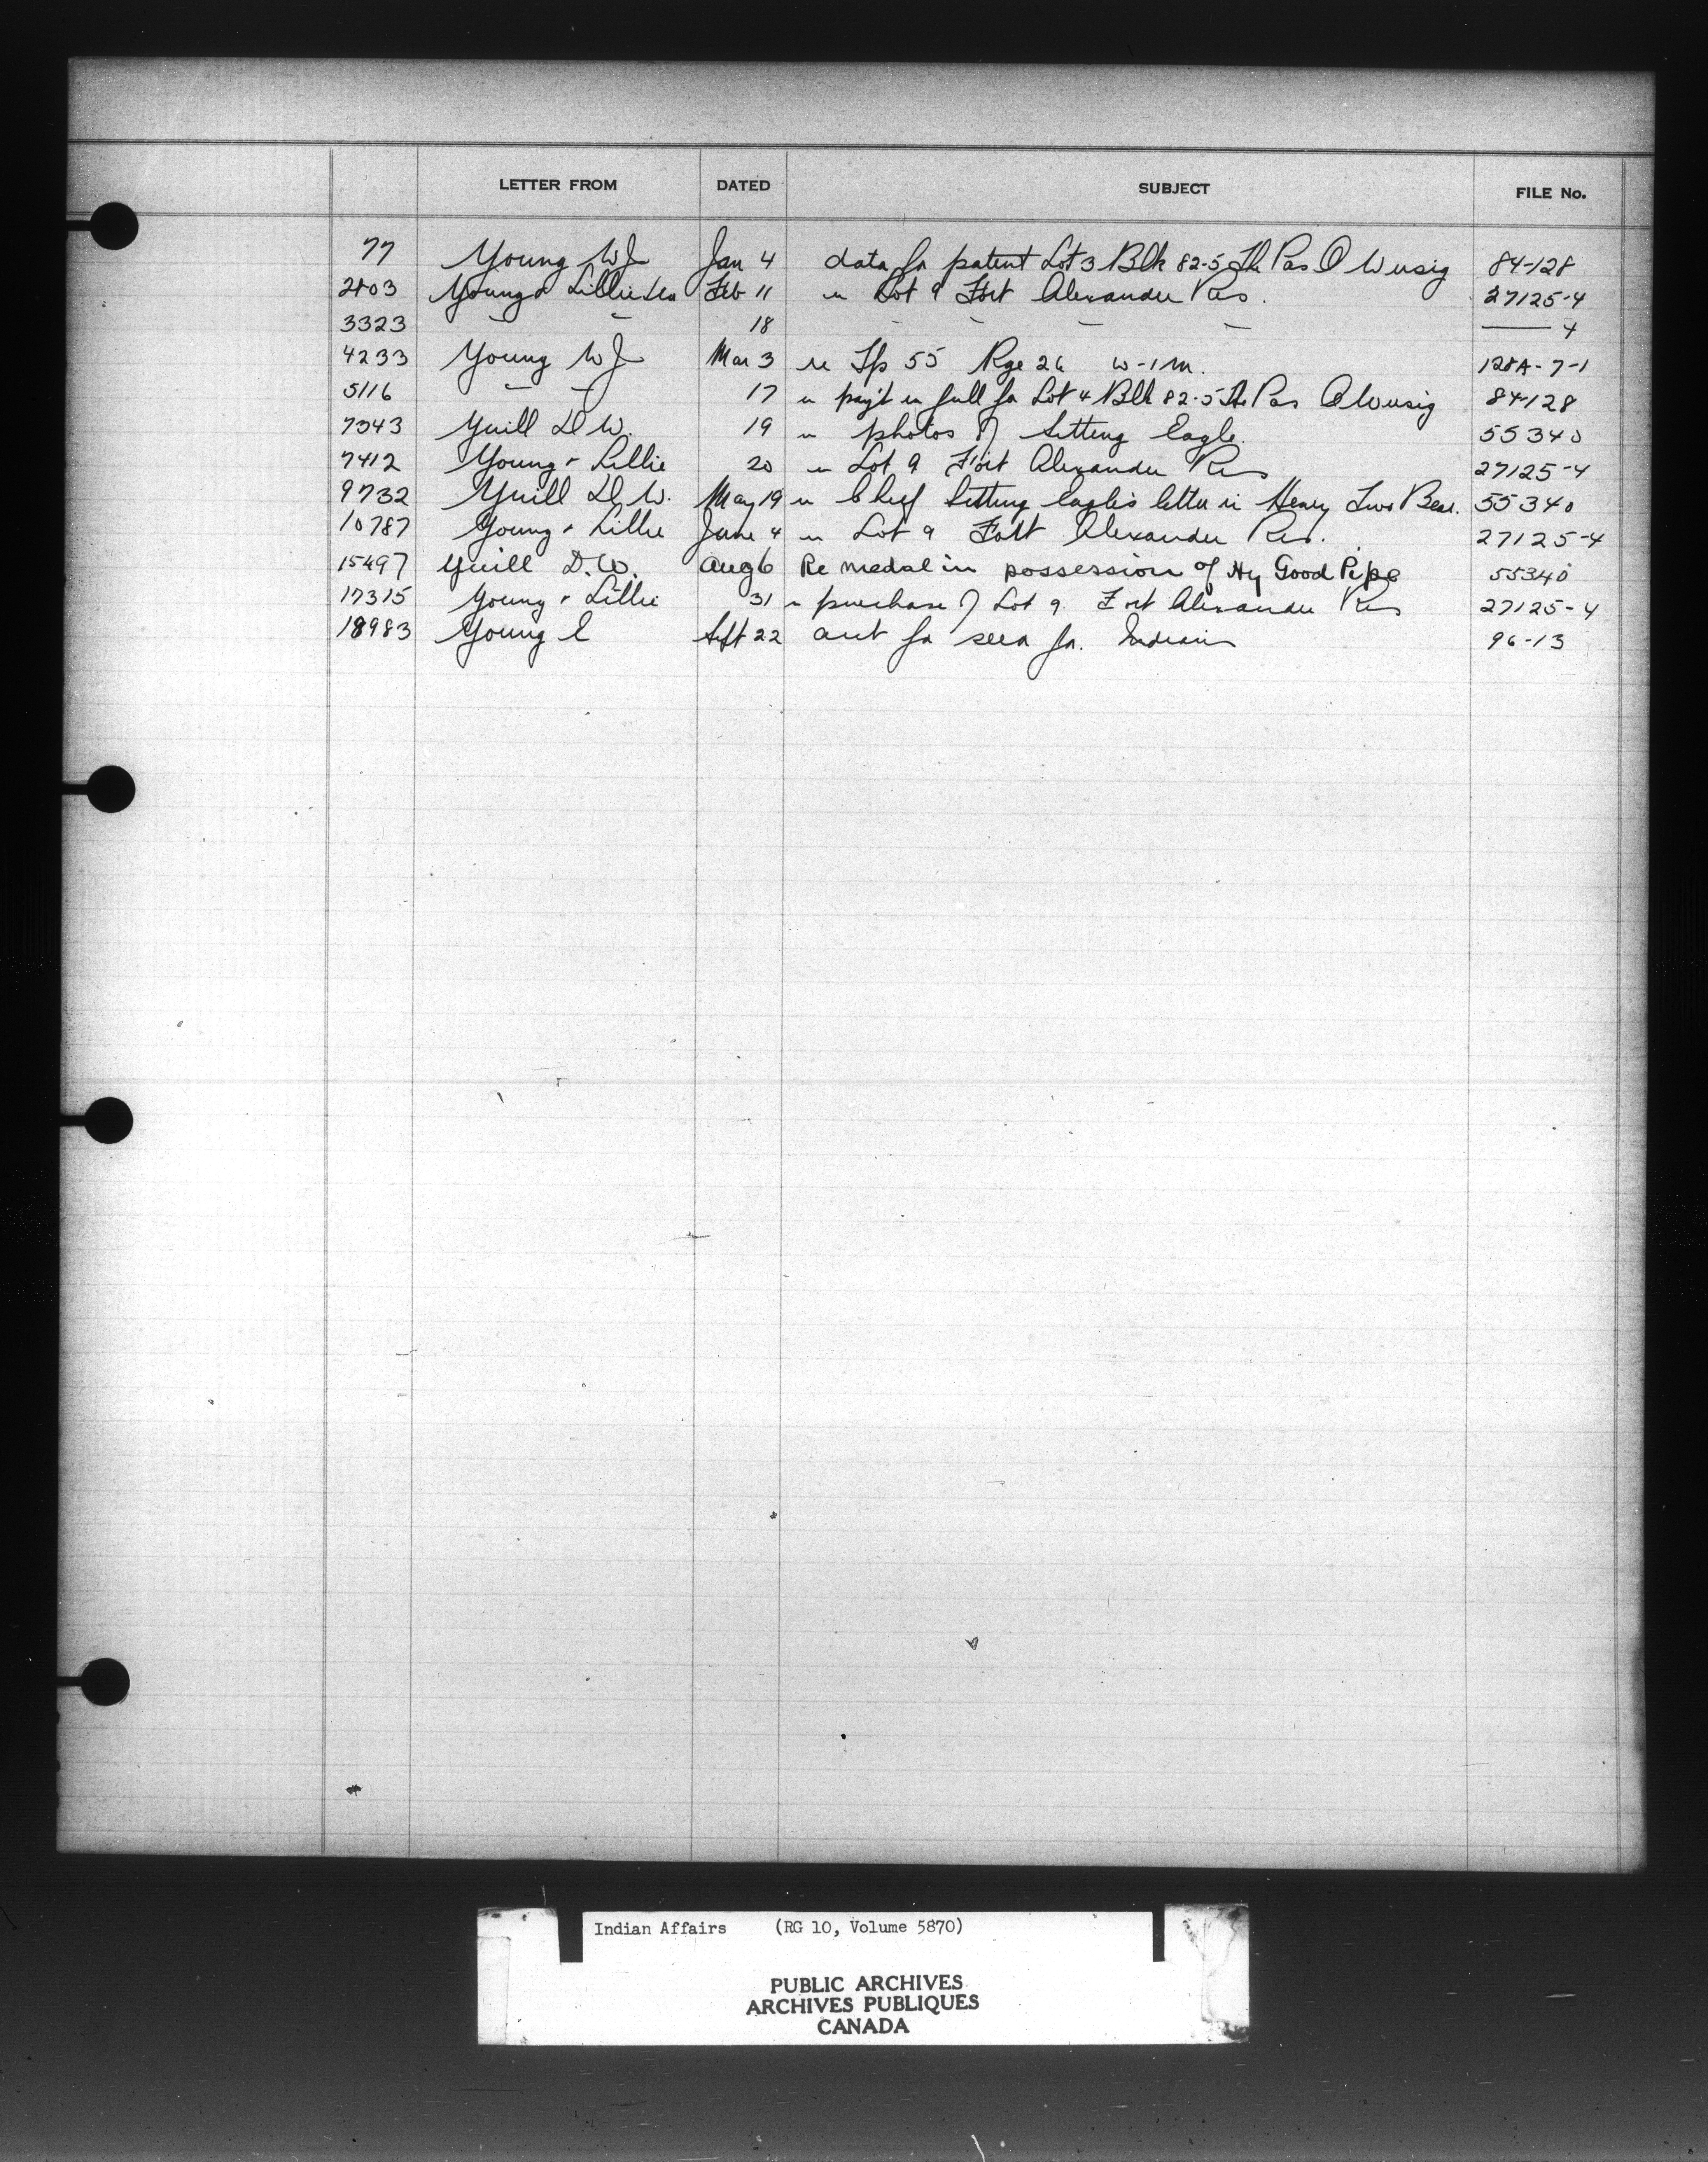 LETTER FROM DATED SUBJECT FILE No.
77 Young W J Jan 4 data for patent Lot 3 Blk 82-5 The Pas 84-128
2803 Young & Lillie Feb 11 re Lot 9 Fort Alexander Res. 27125-4
3323 — — 18 — — — — —— 4
4233 Young W J Mar 3 re Tp 55 Rge 26 W-1 M. 128A-7-1
5116 — — 17 re pay't in full for Lot 4 Blk 82-5 The Pas 84-128
7343 Yuill D W. 19 re photos of Sitting Eagle. 55340
7412 Young & Lillie 20 re Lot 9 Fort Alexander Res 27125-4
9732 Yuill D. W. May 19 re Chief Sitting Eagle's letter Henry Two Bear. 55340
10787 Young & Lillie June 4 re Lot 9 Fort Alexander Res. 27125-4
15497 Yuill D. W. Aug 6 Re medal in possession of Hy Good Pipe 55340
17315 Young & Lillie 31 re purchase of Lot 9 Fort Alexander Res 27125-4
18983 Young Sept 22 for for Indians 96-13
Indian Affairs (RG 10, Volume 5870)
PUBLIC ARCHIVES
ARCHIVES PUBLIQUES
CANADA